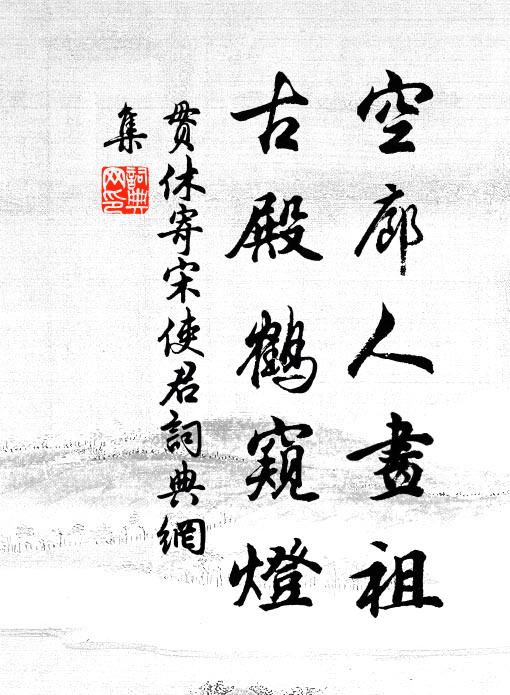 空廊人畫祖
古殿鶴窺燈
貫休寄宋使君詞典網
集
詞典網印